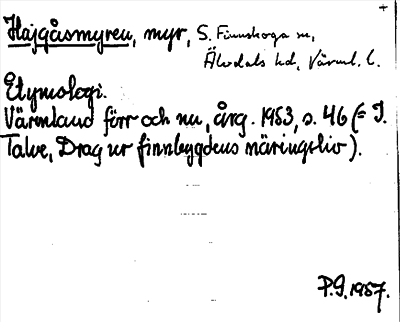 Hajgåsmyren, myr, S. Finnskoga sn,
Älvdals hd, Värml. l.
Etymologi.
Värmland förr och nu, årg. 1953, s. 46 (= I.
Talve, Drag ur finnbygdens näringsliv).
P.G. 1957.